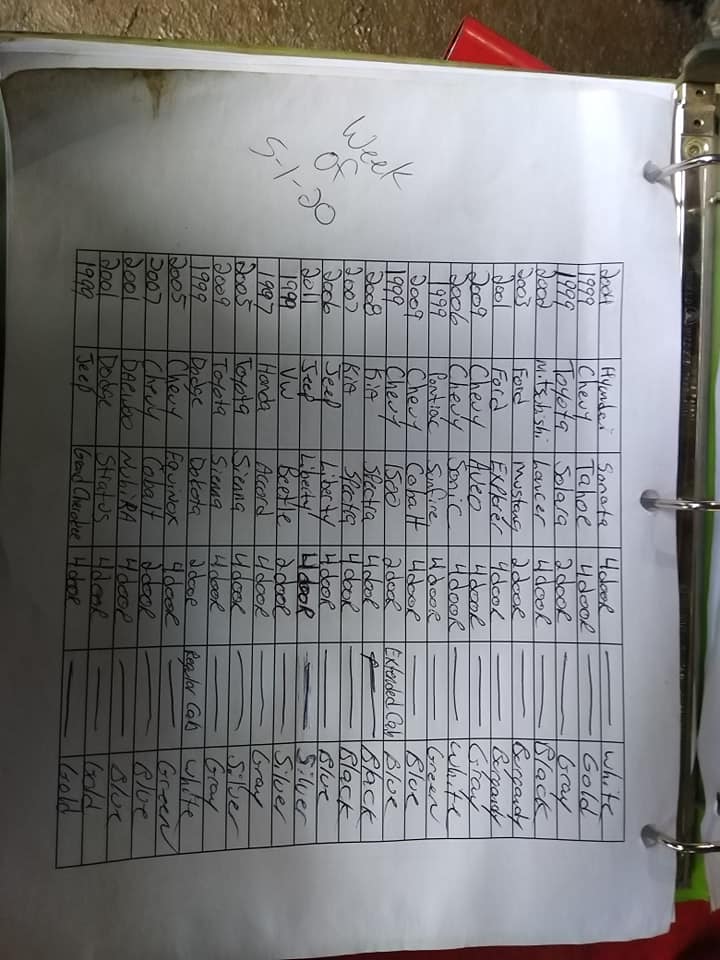 Week
Of
5-1-20
2004 Hyundai Sonata 4 dooR — White
1999 Chevy Tahoe 4 dooR — Gold
1999 Toyota Solara 2 dooR — Gray
2002 Mitshishi Lancer 4 dooR — Black
2003 Ford Mustang 2 dooR — Burgandy
2001 Ford Explorer 4 dooR — Burgandy
2009 Chevy Aveo 4 dooR — Gray
2006 Chevy Sonic 4 dooR — White
1999 Pontiac Sunfire 4 dooR — Green
2009 Chevy Cobalt 4 dooR — Blue
1999 Chevy 1500 2 dooR Extended Cab Blue
2008 KiA Spectra 4 dooR — Black
2007 KiA Spectra 4 dooR — Black
2006 Jeep Liberty 4 dooR — Blue
2011 Jeep Liberty 4 dooR — Silver
1999 VW Beetle 2 dooR — Silver
1997 Honda Accord 4 dooR — Gray
2005 Toyota Sienna 4 dooR — Silver
2009 Toyota Sienna 4 dooR — Gray
1999 Dodge Dakota 2 dooR Regular Cab White
2005 Chevy Equinox 4 dooR — Green
2007 Chevy Cobalt 2 dooR — Blue
2001 DAEWOO NubiRA 4 dooR — Blue
2001 Dodge Stratus 4 dooR — Gold
1999 Jeep Grand Cherokee 4 dooR — Gold